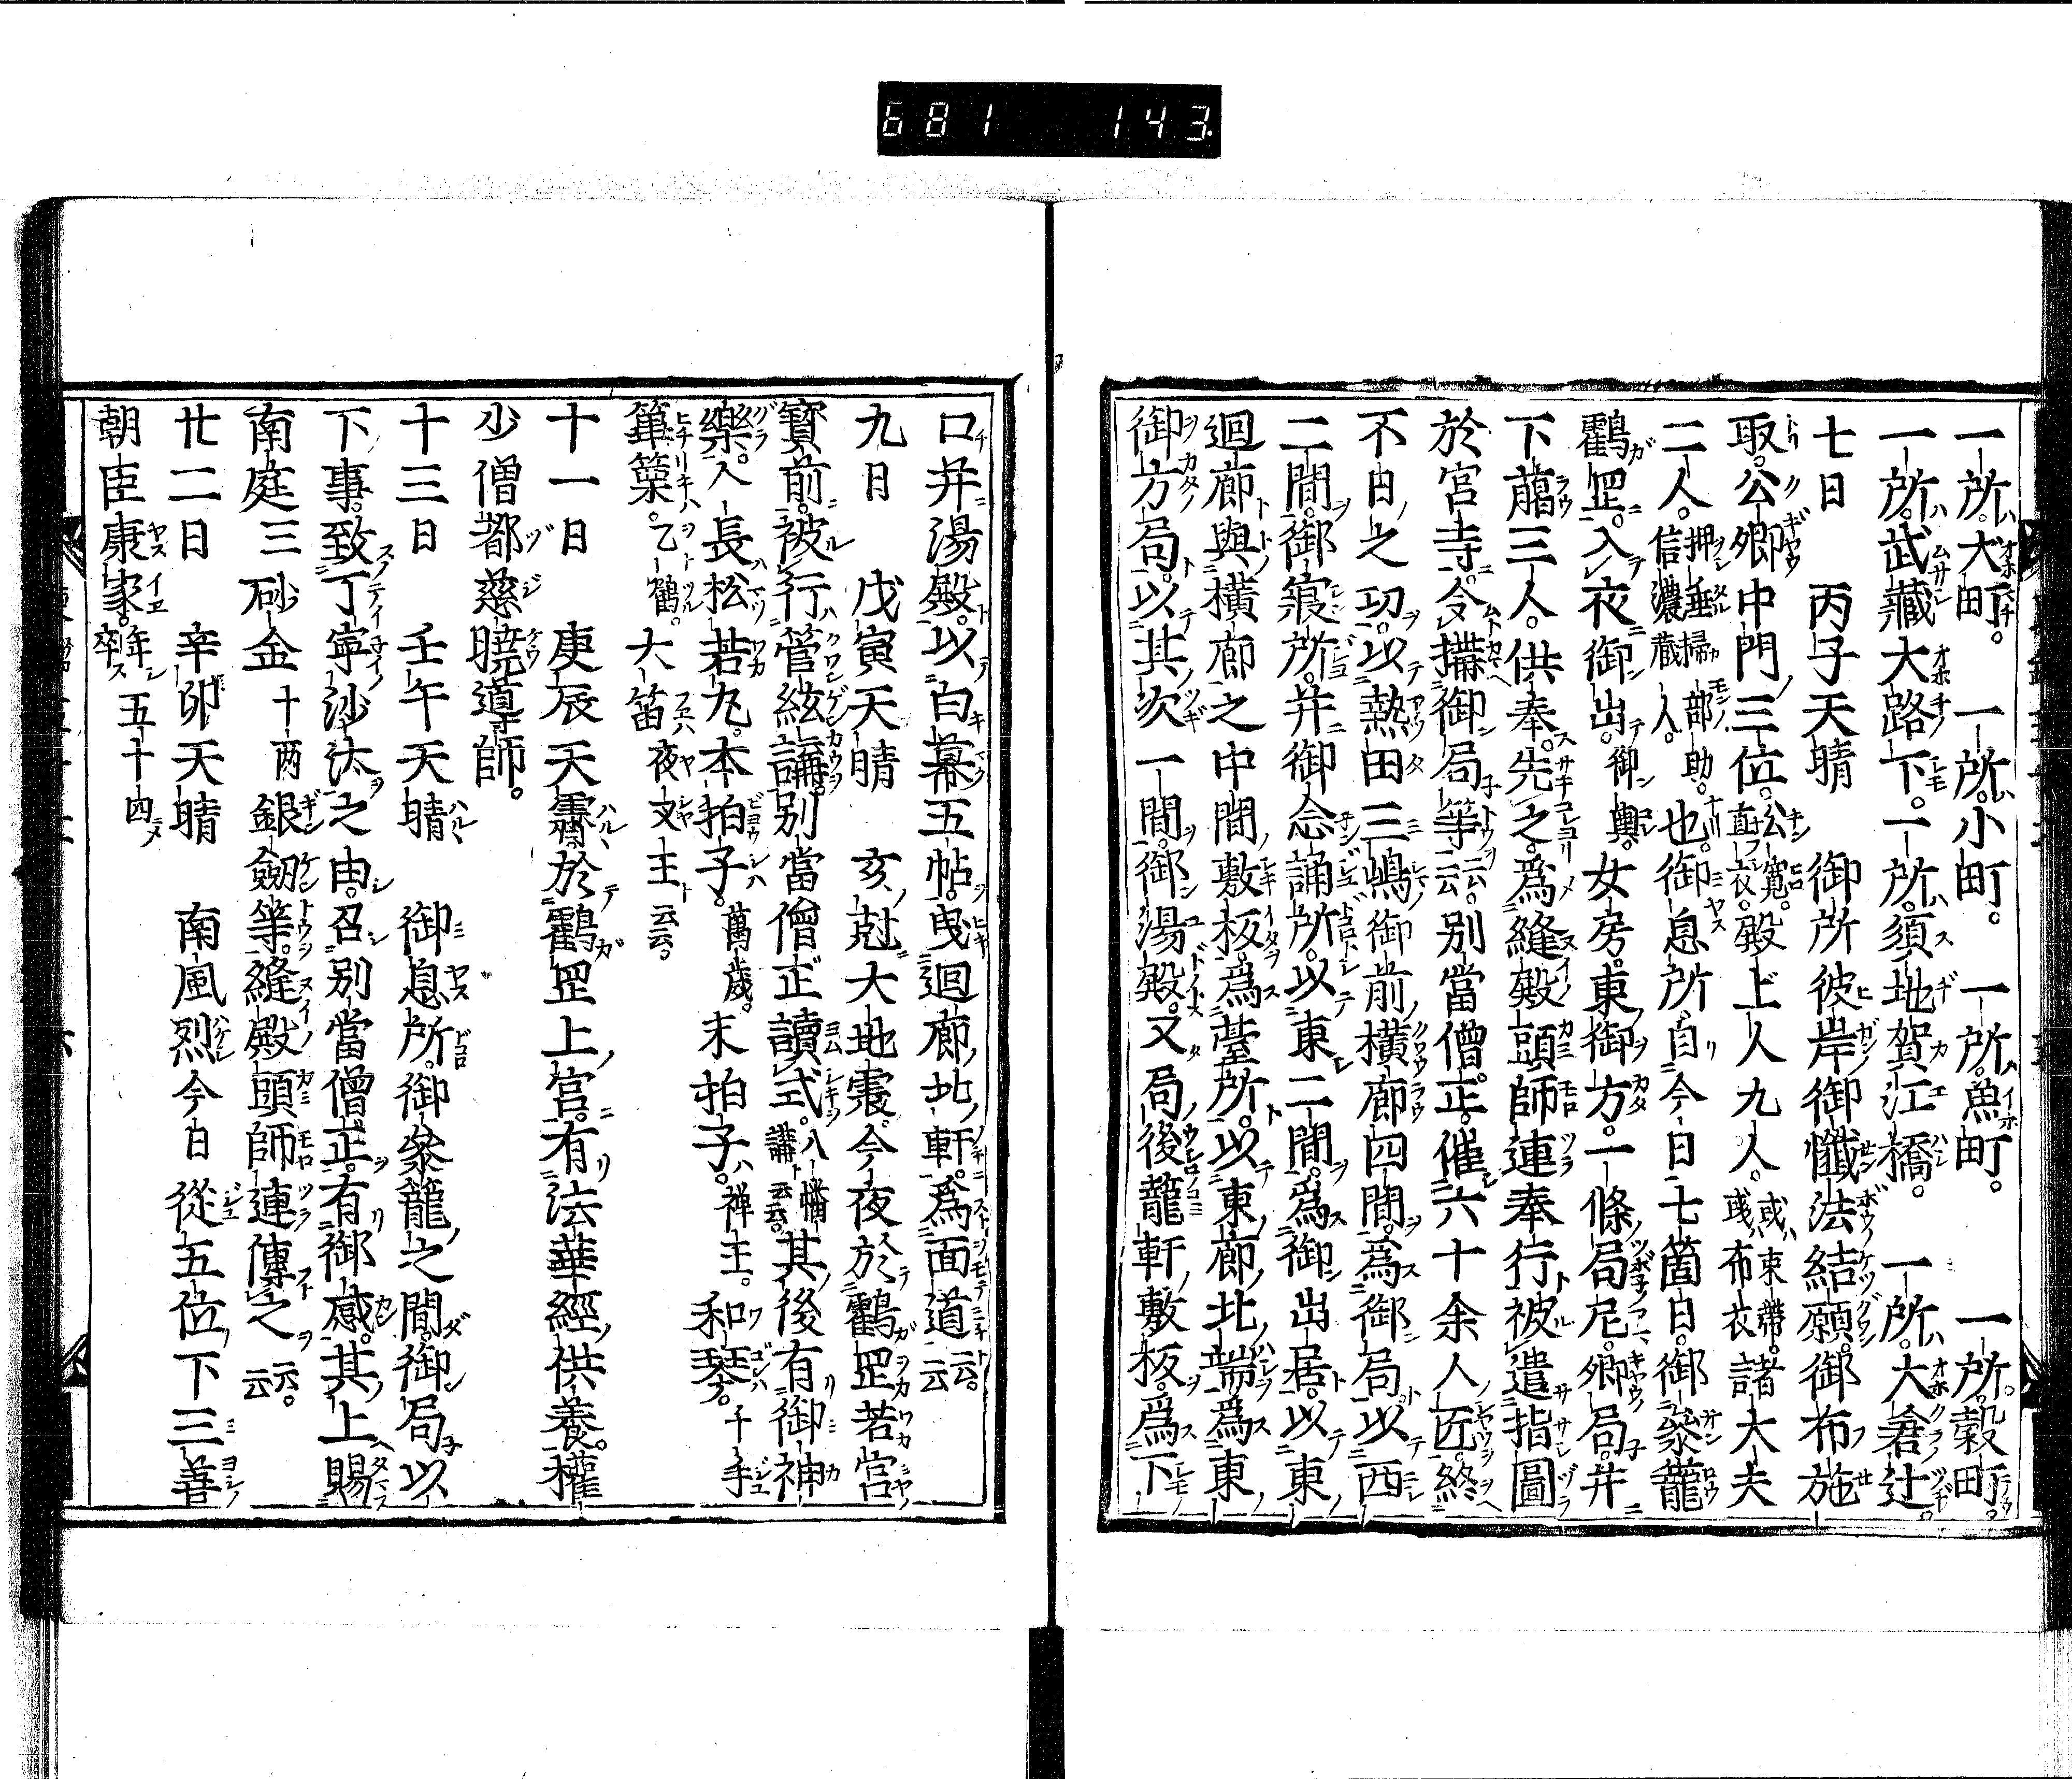 681 143
一所。大町。 一所。小町。 一所。魚町。 一所。穀町。
一所。武藏大路下。一所。須地賀江橋。 一所。大倉辻。
七日 丙子天晴 御所彼岸御懺法結願。御布施
取。公卿中門三位。公寛。直衣。殿上人九人。或束帶。或布衣。諸大夫
二人。押垂掃部助。信濃藏人。也。御息所自今日七箇日。御參籠
鶴罡。入夜御出。御輿。女房。東御方。一條局尼。卿局。并
下﨟三人。供奉。先之。爲縫殿頭師連奉行被遣指圖
於宮寺。令搆御局等云云。別當僧正。催六十余人匠。終
不日之功。以熱田三嶋御前横廊四間。爲御局以西
二間。御寢所。并御念誦所。以東二間。爲御出居。以東
迴廊與横廊之中間敷板。爲臺所。以東廊北端爲東
御方局。以其次一間。御湯殿。又局後籠軒敷板。爲下
口并湯殿。以白幕五帖。曳迴廊北軒。爲面道云云。
九日 戊寅天晴 亥尅大地震。今夜於鶴罡若宮
寶前。被行管絃講。別當僧正讀式。八幡講云云。其後有御神
樂。人長松若丸。本拍子。萬歲。末拍子。禅王。和琴。千手
篳篥。乙鶴。大笛夜叉王云云。
十一日 庚辰天霽。於鶴罡上宮。有法華經供養。權
少僧都慈曉導師。
十三日 壬午天晴 御息所。御參籠之間。御局以
下事。致丁寧沙汰之由。召別當僧正。有御感。其上賜
南庭三砂金十两銀劔等。縫殿頭師連傳之云云。
廿二日 辛卯天晴 南風烈今日從五位下三善
朝臣康家。卒年五十四